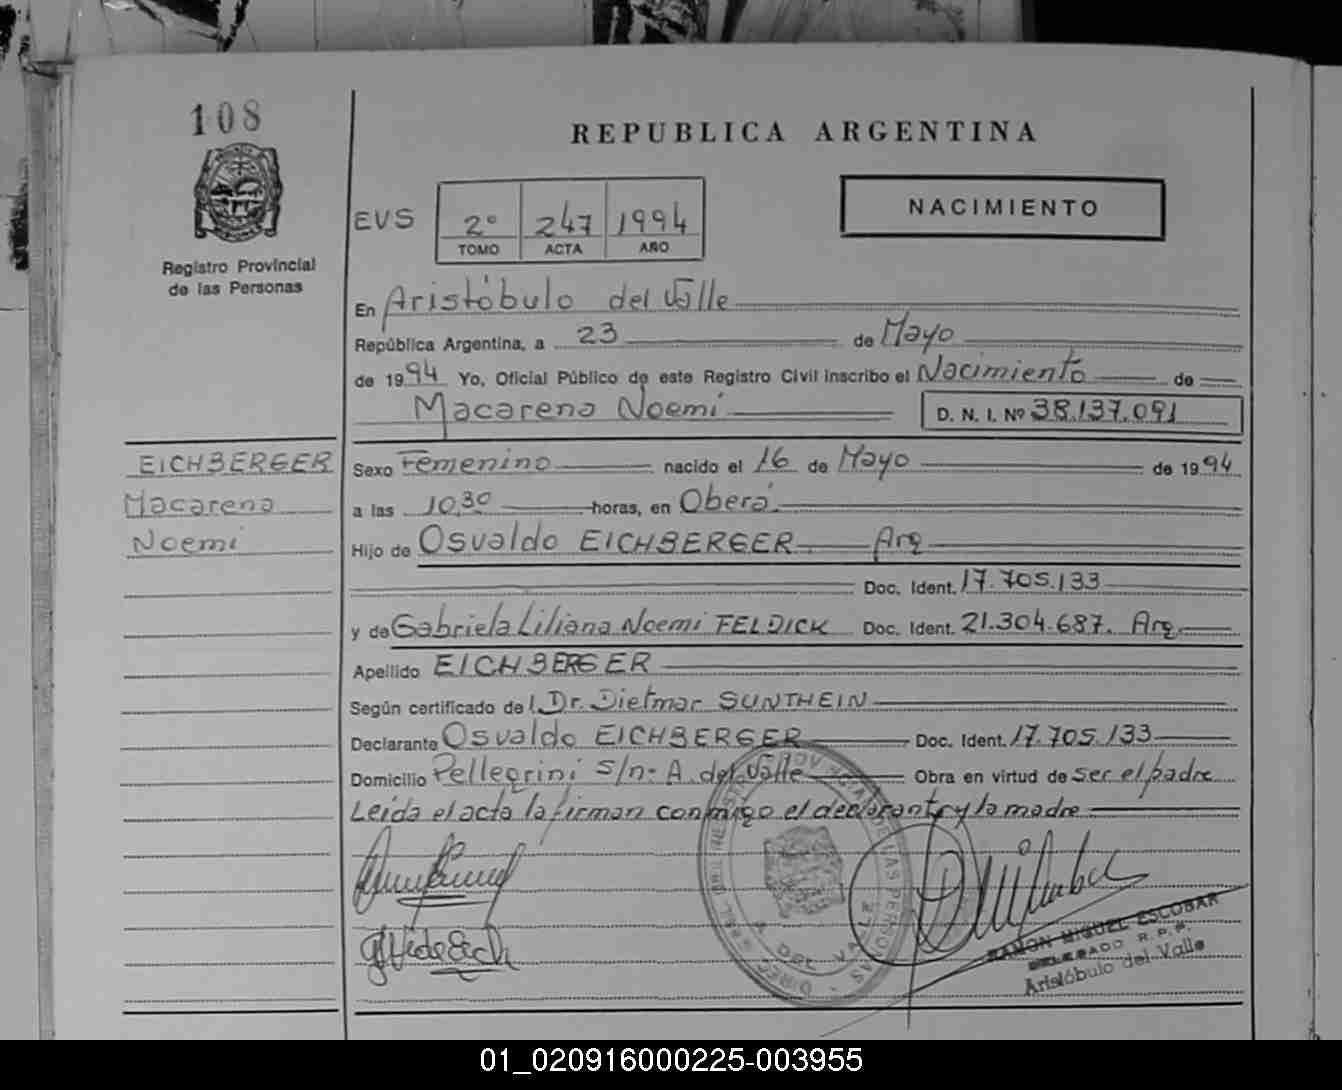 108
REPUBLICA ARGENTINA
NACIMIENTO
EVS 2º 247 1994
TOMO ACTA AÑO
Registro Provincial
de las Personas
En Aristóbulo del Valle
República Argentina, a 23 de Mayo
de 1994 Yo, Oficial Público de este Registro Civil inscribo el Nacimiento de
Macarena Noemi D. N. I. Nº 38.137.091
EICHBERGER
Macarena
Noemi
Sexo Femenino nacido el 16 de Mayo de 1994
a las 10,30 horas, en Oberá
Hijo de Osvaldo EICHBERGER Arg
Doc. Ident. 17.705.133
y de Gabriela Liliana Noemi FELDICK Doc. Ident. 21.304.687. Arg.
Apellido EICHBERGER
Según certificado del Dr. Dietmar SUNTHEIN
Declarante Osvaldo EICHBERGER Doc. Ident. 17.705.133
Domicilio Pellegrini s/nº A. del Valle Obra en virtud de ser el padre
Leída el acta la firman conmigo el declarante y la madre
RAMON MIGUEL ESCOBAR
DELEGADO R.P.P.
Aristóbulo del Valle
01_020916000225-003955